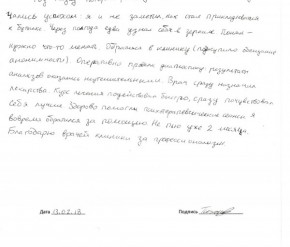 успехом я и не заметил, как стал прикладываться
к бутылке. Через полгода едва узнал себя в зеркале. Решил –
нужно что-то менять. Обратился в клинику
Оперативно провели диагностику, результаты
анализов оказались неутешительными. Врач сразу назначил
лекарства. Курс лечения подействовал быстро, сразу почувствовал
себя лучше. Здорово помогли психотерапевтические сеансы. Я
вовремя обратился за помощью. Не пью уже 2 месяца.
Благодарю врачей клиники за профессионализм.
Дата 13.02.13 Подпись